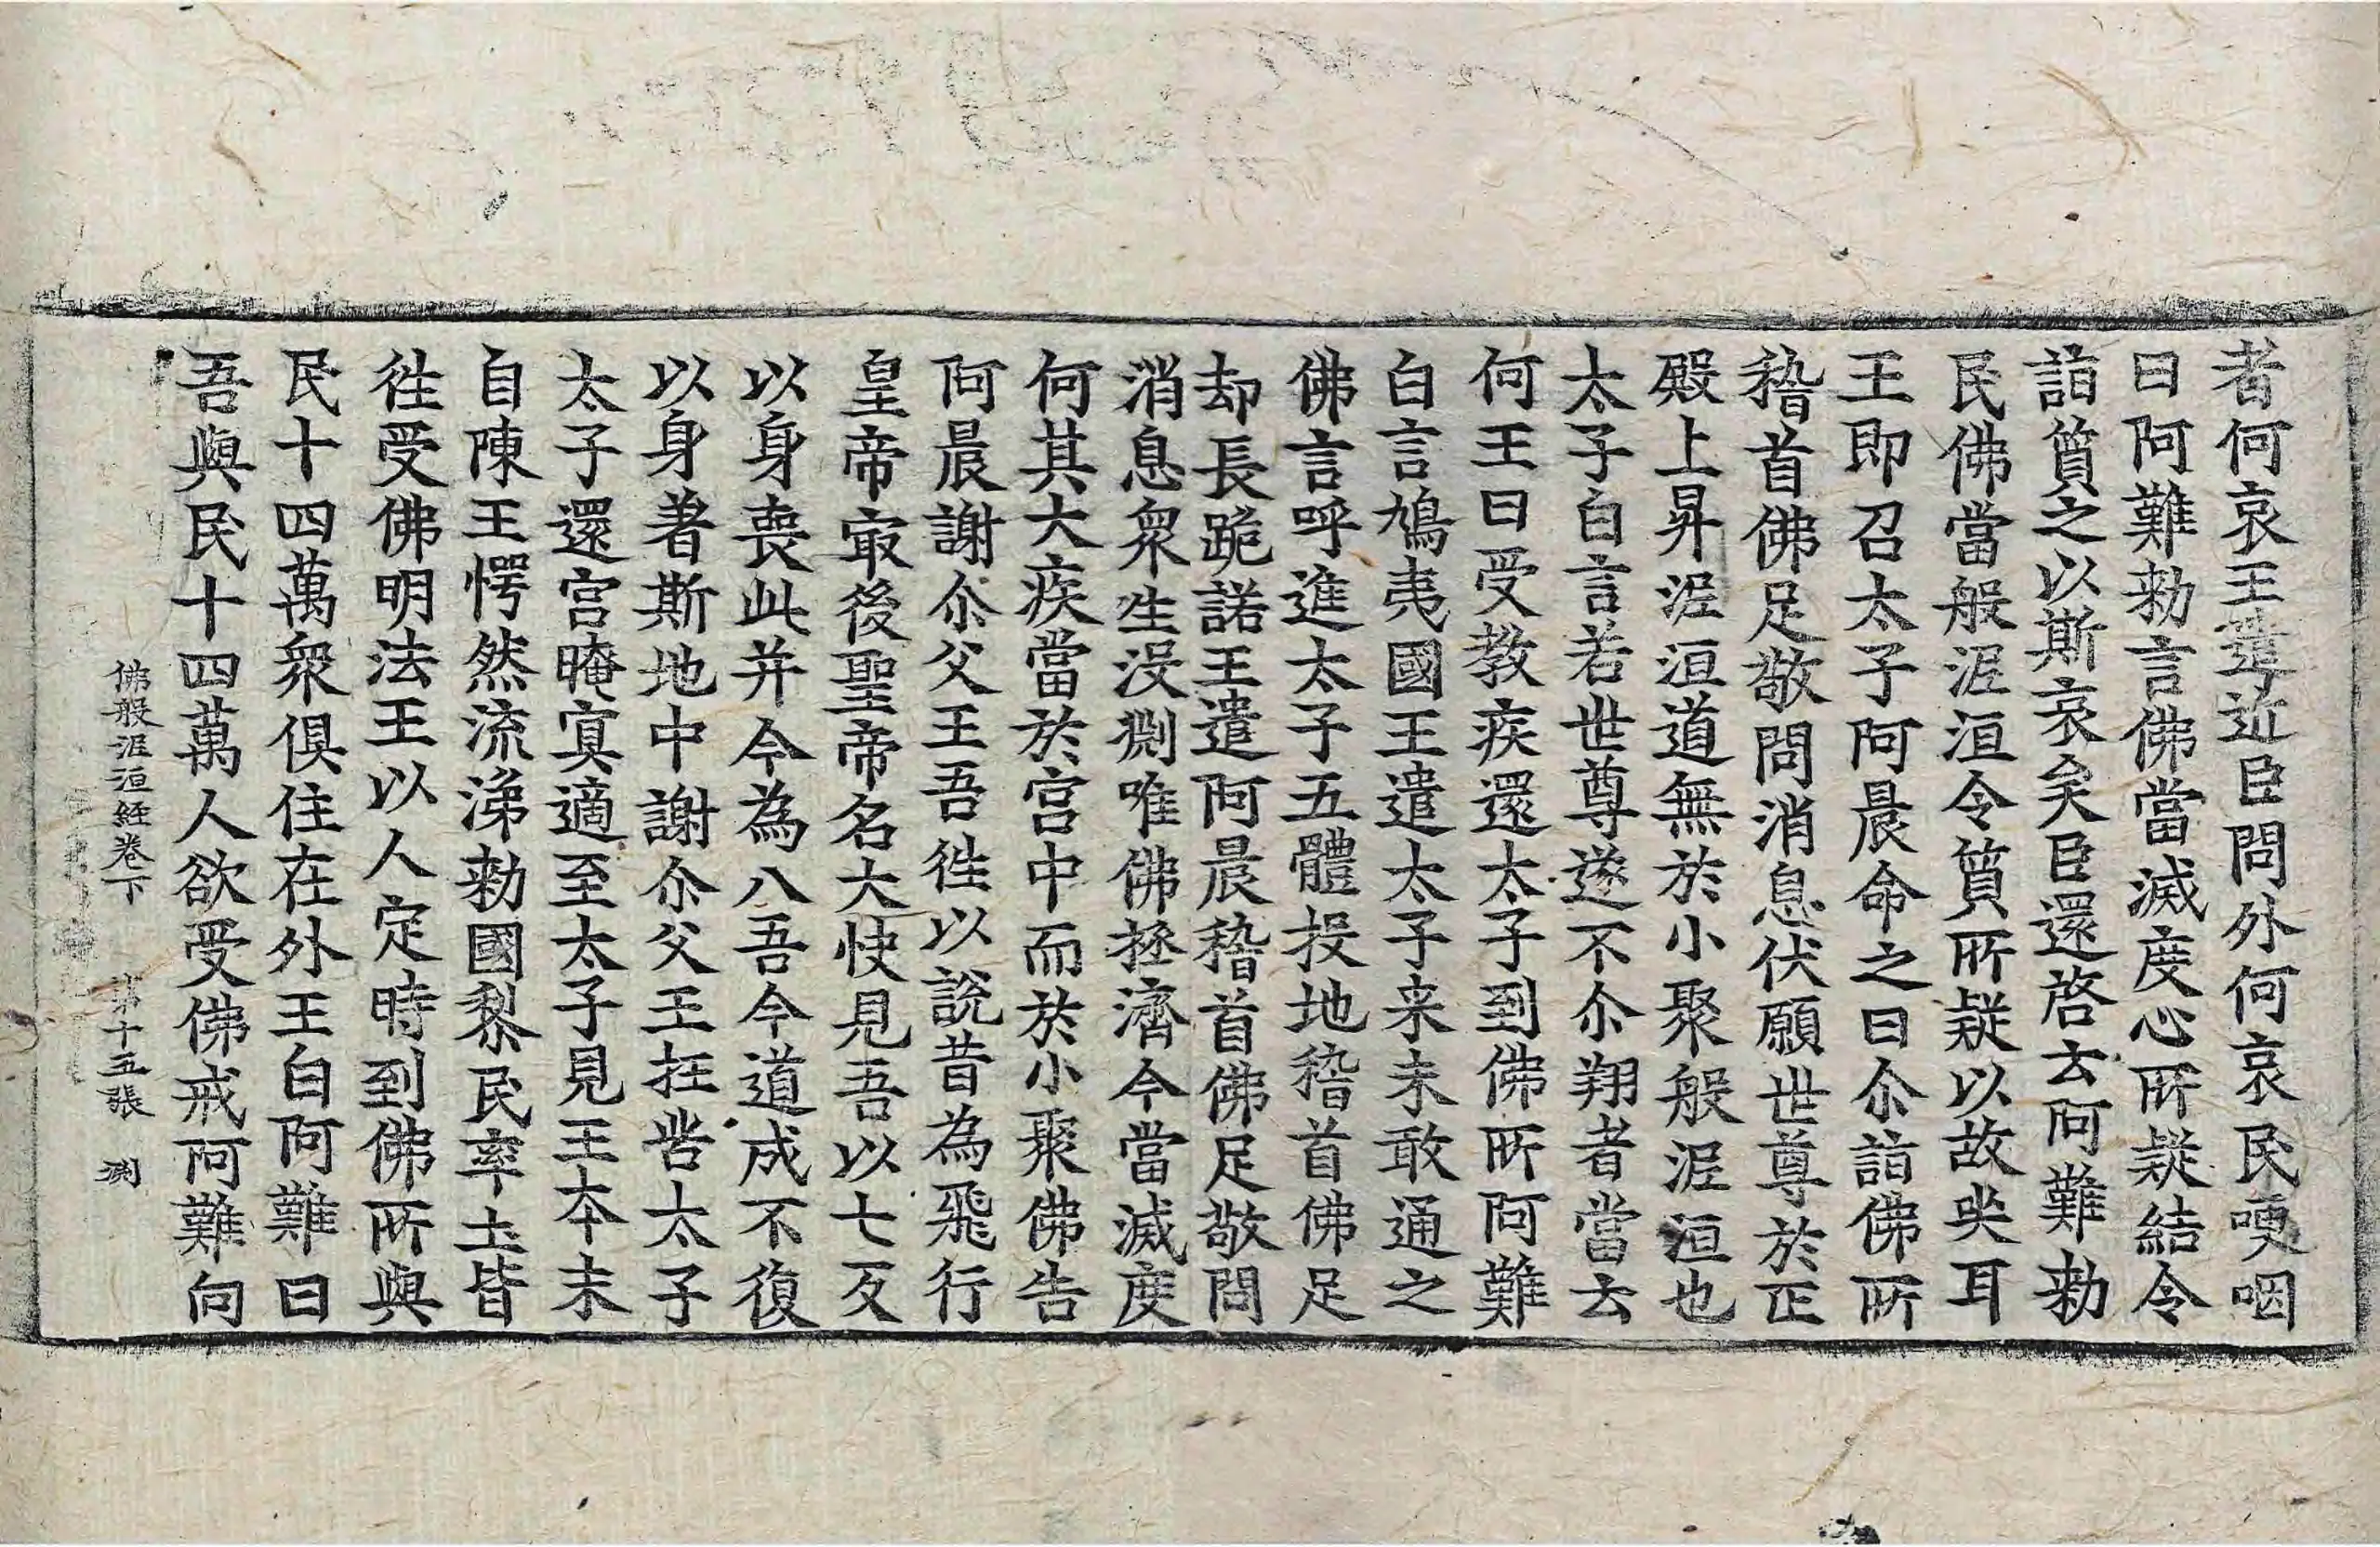 者何哀王遣近臣問外何哀民哽咽
曰阿難勑言佛當滅度心所疑結令
詣質之以斯哀矣臣還啓去阿難勑
民佛當般泥洹令質所疑以故哭耳
王即召太子阿晨命之曰尒詣佛所
稽首佛足敬問消息伏願世尊於正
殿上昇泥洹道無於小聚般泥洹也
太子白言若世尊遂不尒翔者當去
何王曰受教疾還太子到佛所阿難
白言鳩夷國王遣太子来未敢通之
佛言呼進太子五體投地稽首佛足
却長跪諾王遣阿晨稽首佛足敬問
消息衆生没淵唯佛拯濟今當滅度
何其大疾當於宮中而於小聚佛告
阿晨謝尒父王吾徃以說昔為飛行
皇帝冣後聖帝名大快見吾以七反
以身喪此并今為八吾今道成不復
以身著斯地中謝尒父王抂苦太子
太子還宮晻㝠適至太子見王本末
自陳王愕然流涕勑國黎民率土皆
徃受佛明法王以人定時到佛所與
民十四萬衆俱住在外王白阿難曰
吾與民十四萬人欲受佛戒阿難向
佛般泥洹經卷下　第十五張　渕